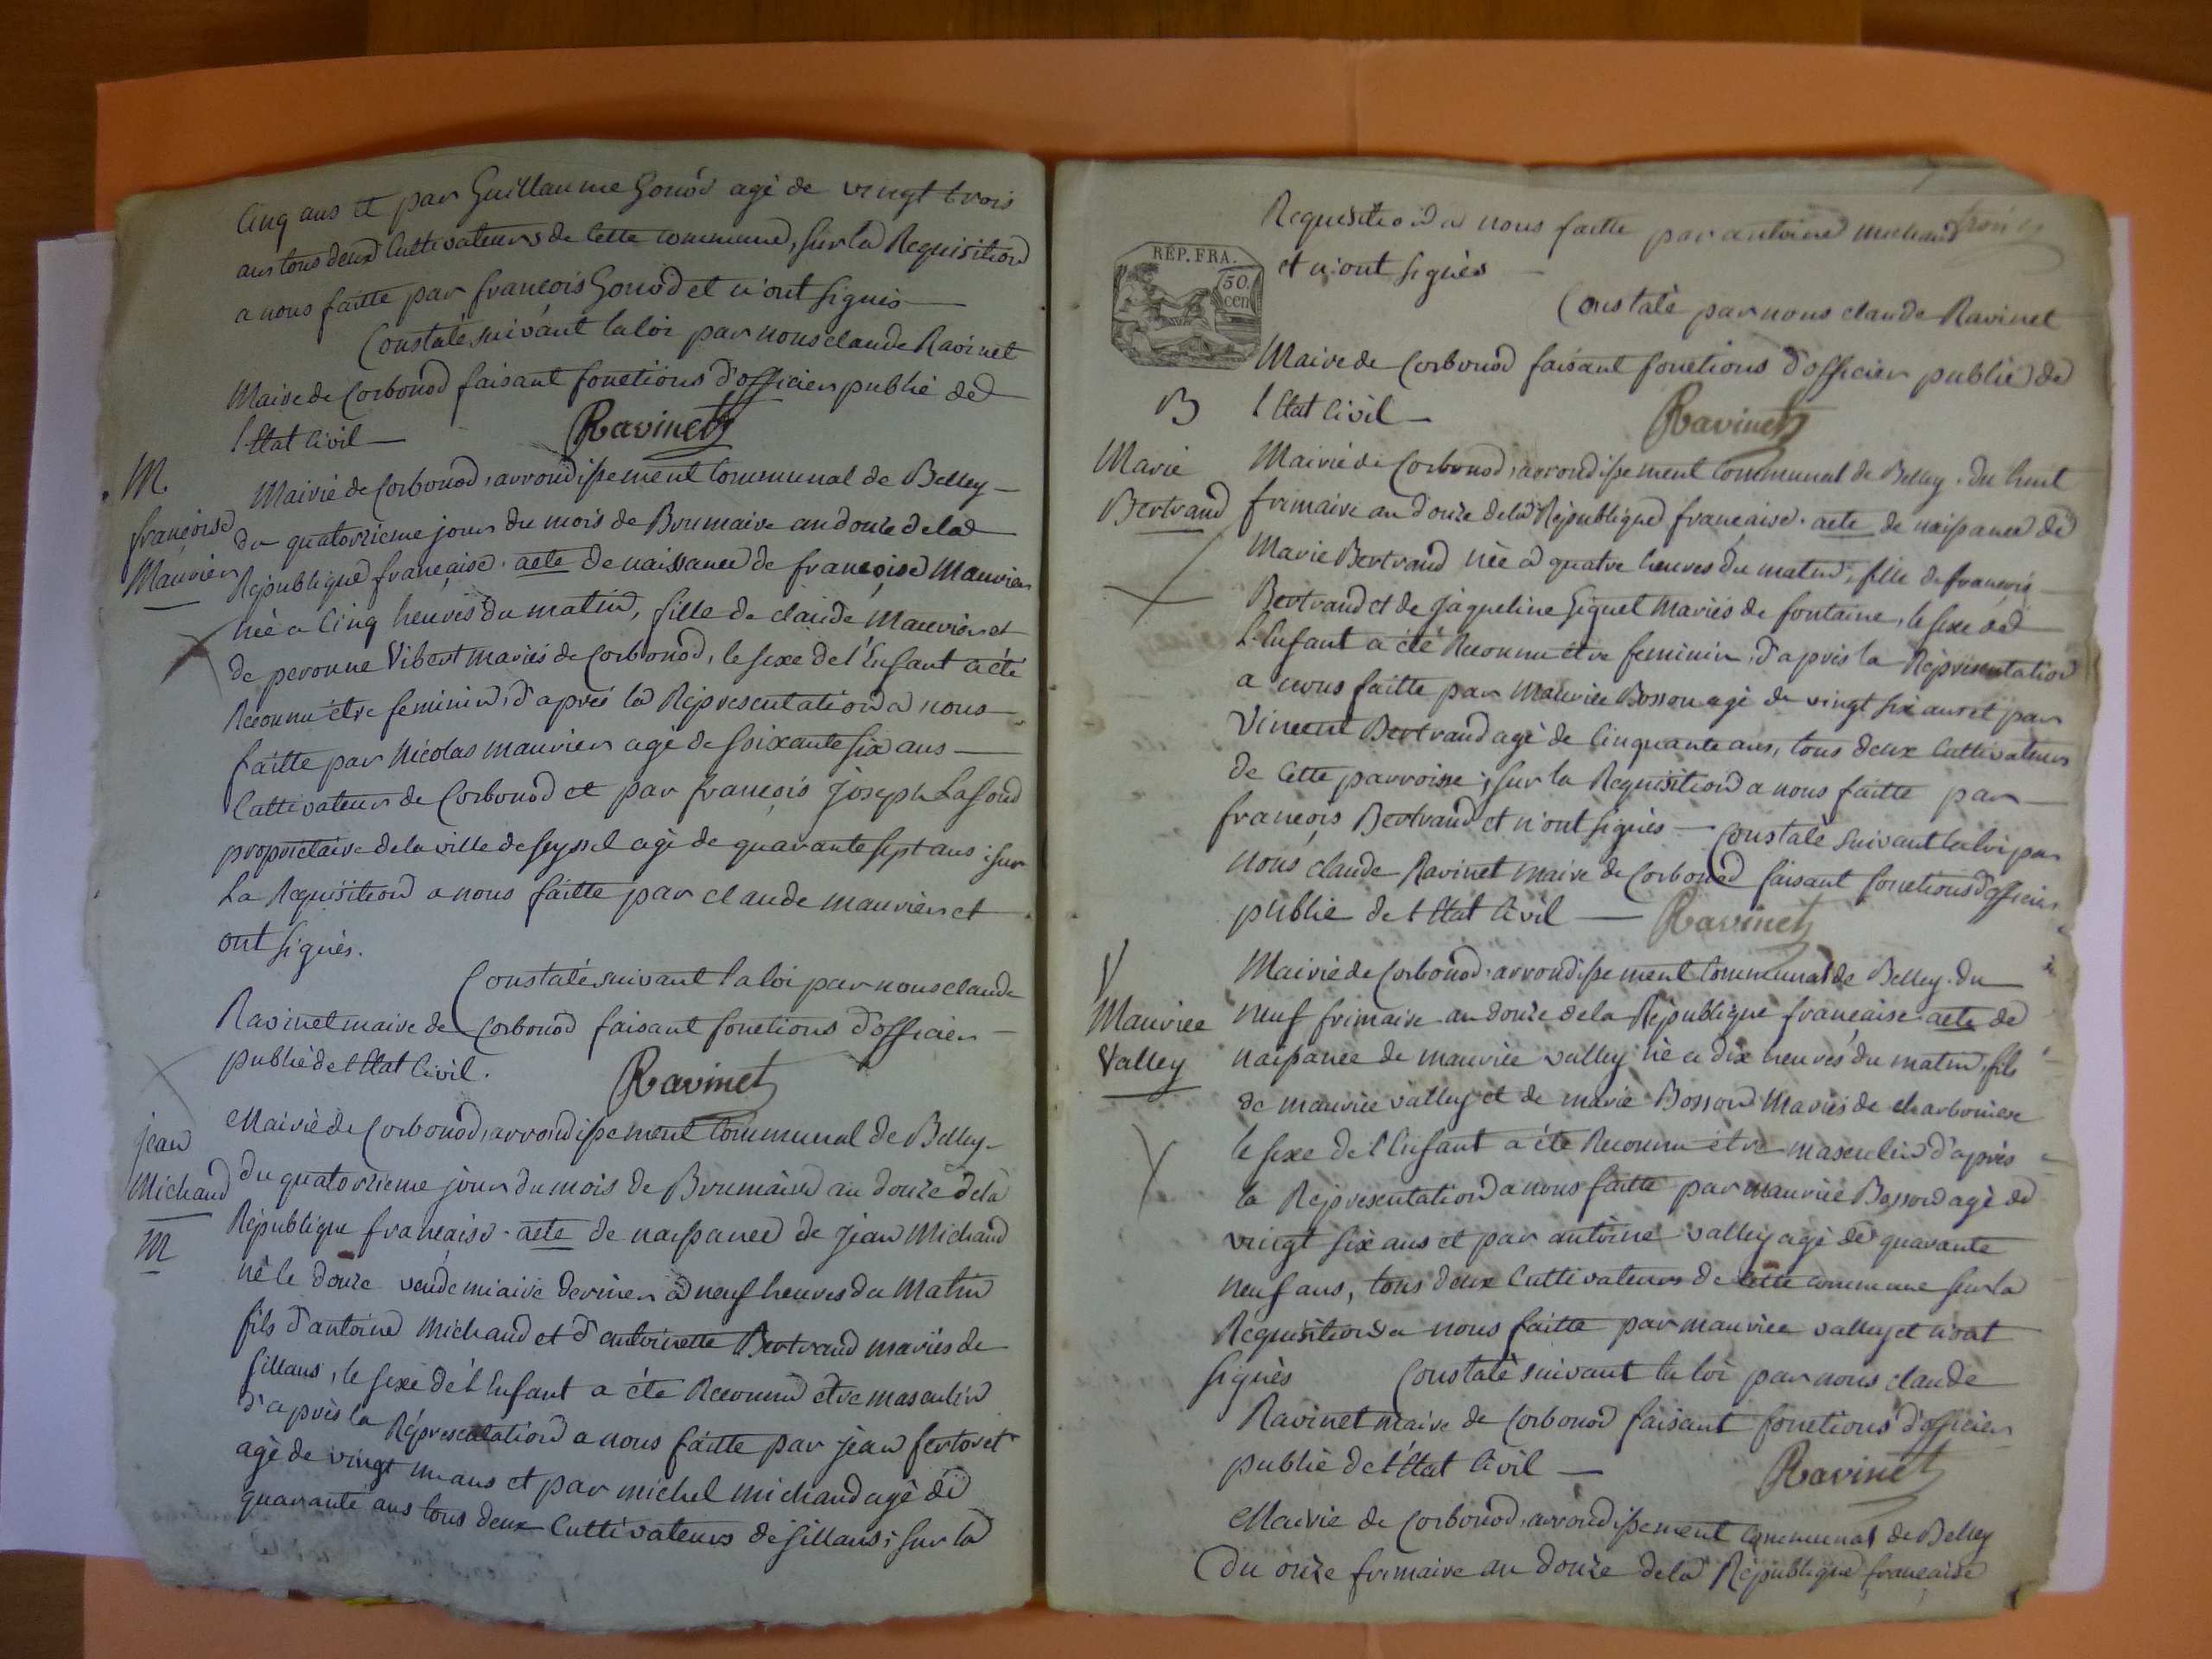 Cinq ans et par Guillaume Gonod agé de vingt trois
ans tous deux Cultivateurs de Cette commune, sur la Requisition
a nous faitte par françois Gonod et n'ont signés
Constaté suivant la loi par nous claude Ravinet
Maire de Corbonod faisant fonctions d'officier public de
l'Etat Civil — Ravinet
M.
françoise
Mauvier
Mairie de Corbonod, arrondissement Communal de Belley —
du quatorzieme jour du mois de Brumaire an douze de la
République française. acte de naissance de françoise Mauvier
née a Cinq heures du matin, fille de claude Mauvier et
de peronne Vibert mariés de Corbonod, le sexe de l'Enfant a été
Reconnu être feminin, d'après la Représentation a nous
faitte par Nicolas mauvier agé de soixante six ans —
Cultivateur de Corbonod et par françois Joseph Lafond
propriétaire de la ville de Seyssel agé de quarante sept ans ; sur
La Requisition a nous faitte par claude mauvier et
ont signés.
Constaté suivant la loi par nous claude
Ravinet maire de Corbonod faisant fonctions d'officier —
public de l'Etat Civil. Ravinet
jean
Michaud
M
Mairie de Corbonod, arrondissement Communal de Belley —
du quatorzieme jour du mois de Brumaire an douze de la
République française. acte de naissance de Jean Michaud
né le douze vendemiaire dernier a neuf heures du Matin
fils d'antoine Michaud et d'antoinette Bertrand mariés de
sillans, le sexe de l'Enfant a été Reconnu être masculin
d'après la Représentation a nous faitte par jean fertoret
agé de vingt un ans et par michel michaud agé de
quarante ans tous deux Cultivateurs de sillans ; sur la
Requisition a nous faitte par antoine michaud
RÉP. FRA.
50.
cen.
et n'ont signés —
Constaté par nous claude Ravinet
Maire de Corbonod faisant fonctions d'officier public de
l'Etat Civil — Ravinet
B
Marie
Bertrand
Mairie de Corbonod, arrondissement Communal de Belley. du huit
frimaire an douze de la République française. acte de naissance de
Marie Bertrand née a quatre heures du matin, fille de françois —
Bertrand et de Jaqueline Giguet Mariés de fontaine, le sexe de
l'Enfant a été Reconnu être feminin, d'après la Représentation
a nous faitte par Maurice Bosson agé de vingt six ans et par
Vincent Bertrand agé de Cinquante ans, tous deux Cultivateurs
de Cette parroisse ; sur la Requisition a nous faitte par —
françois Bertrand et n'ont signés — Constaté suivant la loi par
nous claude Ravinet maire de Corbonod faisant fonctions d'officier
public de l'Etat Civil — Ravinet
V
Maurice
Valley
Mairie de Corbonod, arrondissement Communal de Belley. du
neuf frimaire an douze de la République française. acte de
naissance de maurice valley né a dix heures du matin, fils
de maurice valley et de marie Bosson Mariés de charboniere
le sexe de l'Enfant a été Reconnu être masculin d'après
la Représentation a nous faitte par maurice Bosson agé de
vingt six ans et par antoine valley agé de quarante
neuf ans, tous deux Cultivateurs de cette commune sur la
Requisition a nous faitte par maurice valley et n'ont
signés Constaté suivant la loi par nous claude
Ravinet maire de Corbonod faisant fonctions d'officier
public de l'Etat Civil — Ravinet
Mairie de Corbonod, arrondissement Communal de Belley
Du onze frimaire an douze de la République française